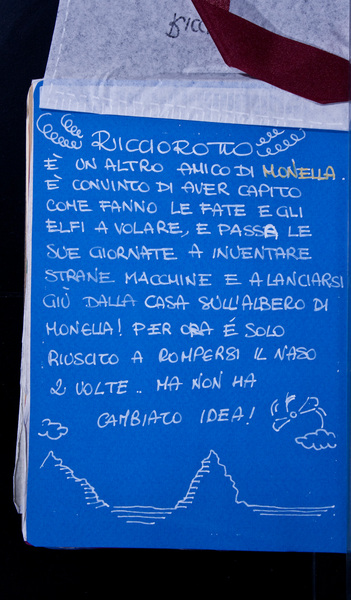 RICCIOROTTO
È UN ALTRO AMICO DI MONELLA.
È CONVINTO DI AVER CAPITO
COME FANNO LE FATE E GLI
ELFI A VOLARE, E PASSA LE
SUE GIORNATE A INVENTARE
STRANE MACCHINE E A LANCIARSI
GIÙ DALLA CASA SULL'ALBERO DI
MONELLA! PER ORA É SOLO
RIUSCITO A ROMPERSI IL NASO
2 VOLTE.. MA NON HA
CAMBIATO IDEA!